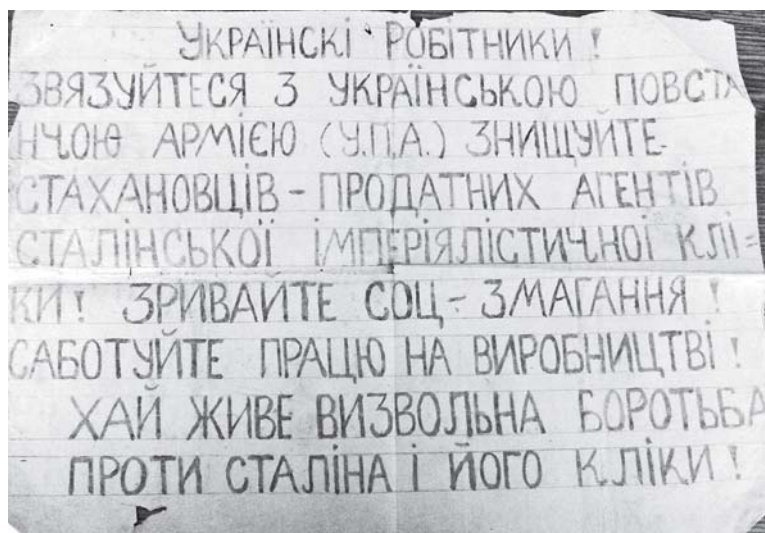 УКРАЇНСКІ РОБІТНИКИ !
ЗВЯЗУЙТЕСЯ З УКРАЇНСЬКОЮ ПОВСТА
НЧОЮ АРМІЄЮ (У.П.А.) ЗНИЩУЙТЕ
СТАХАНОВЦІВ - ПРОДАТНИХ АГЕНТІВ
СТАЛІНСЬКОЇ ІМПЕРІЯЛІСТИЧНОЇ КЛІ=
КИ ! ЗРИВАЙТЕ СОЦ - ЗМАГАННЯ !
САБОТУЙТЕ ПРАЦЮ НА ВИРОБНИЦТВІ !
ХАЙ ЖИВЕ ВИЗВОЛЬНА БОРОТЬБА
ПРОТИ СТАЛІНА І ЙОГО КЛІКИ !